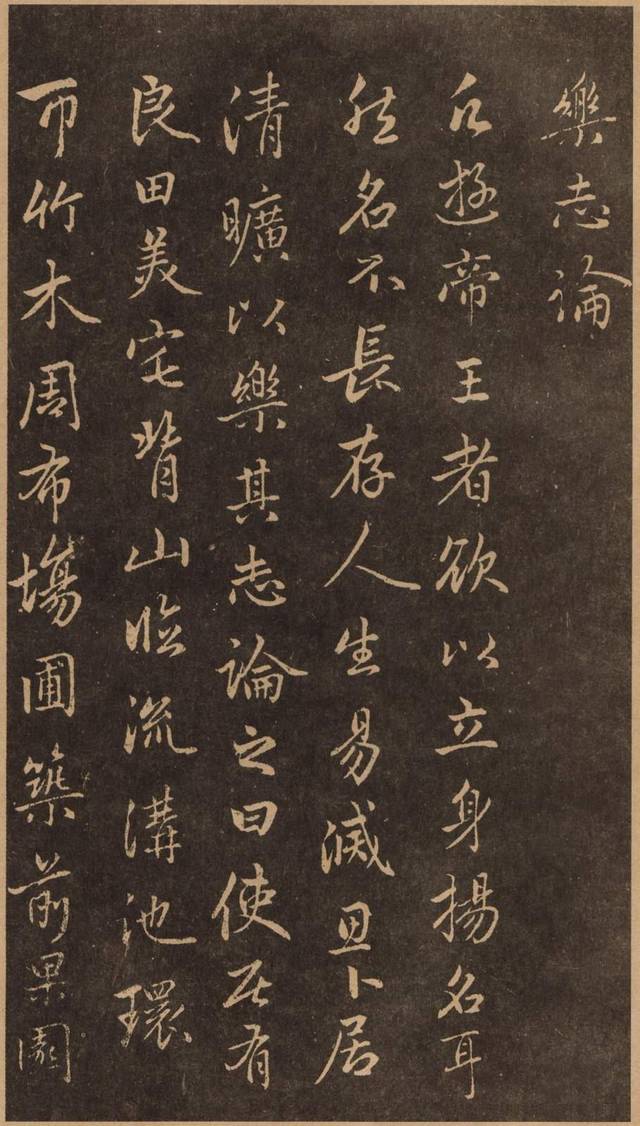 樂志論
凡遊帝王者欲以立身揚名耳
然名不長存人生易滅思卜居
清曠以樂其志論之曰使居有
良田美宅背山臨流溝池環
帀竹木周布塲圃築前果園